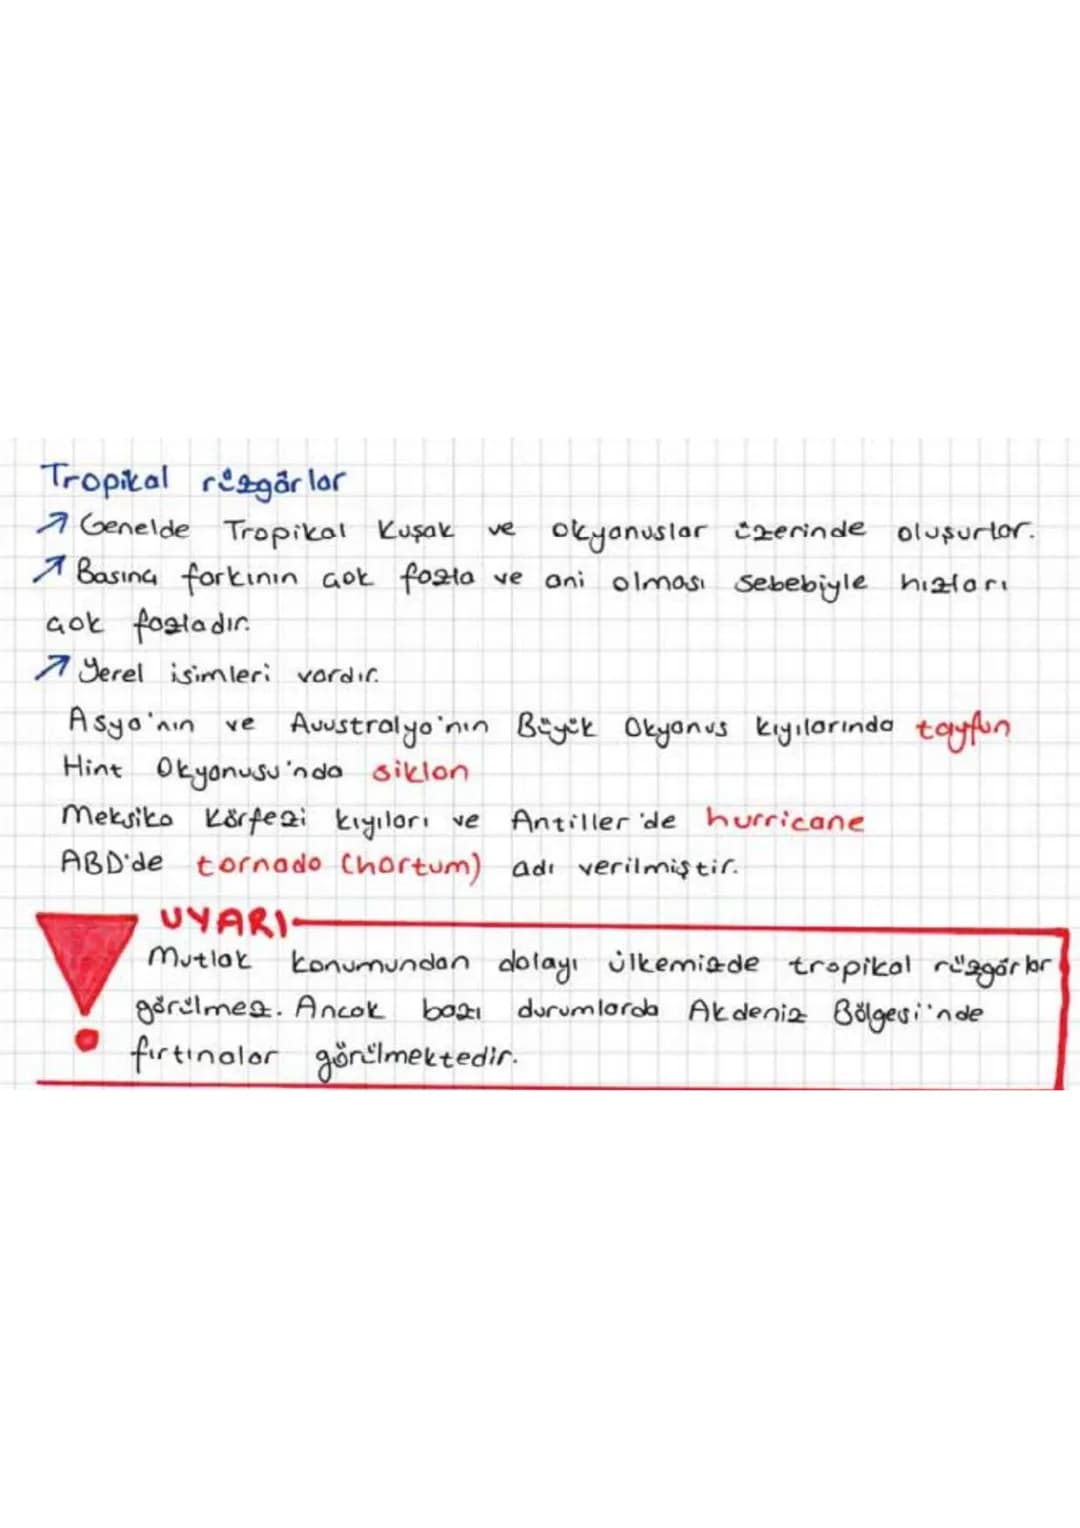 Tropikal rüzgârlar
↗ Genelde Tropikal Kuşak ve okyanuslar üzerinde oluşurlar.
↗ Basınç farkının çok fazla ve ani olması sebebiyle hızları
çok fazladır.
↗ Yerel isimleri vardır.
Asya'nın ve Avustralya'nın Büyük Okyanus kıyılarında tayfun
Hint Okyanusu'nda siklon
Meksika Körfezi kıyıları ve Antiller'de hurricane
ABD'de tornado (hortum) adı verilmiştir.
UYARI
Mutlak konumundan dolayı ülkemizde tropikal rüzgârlar
görülmez. Ancak bazı durumlarda Akdeniz Bölgesi'nde
fırtınalar görülmektedir.